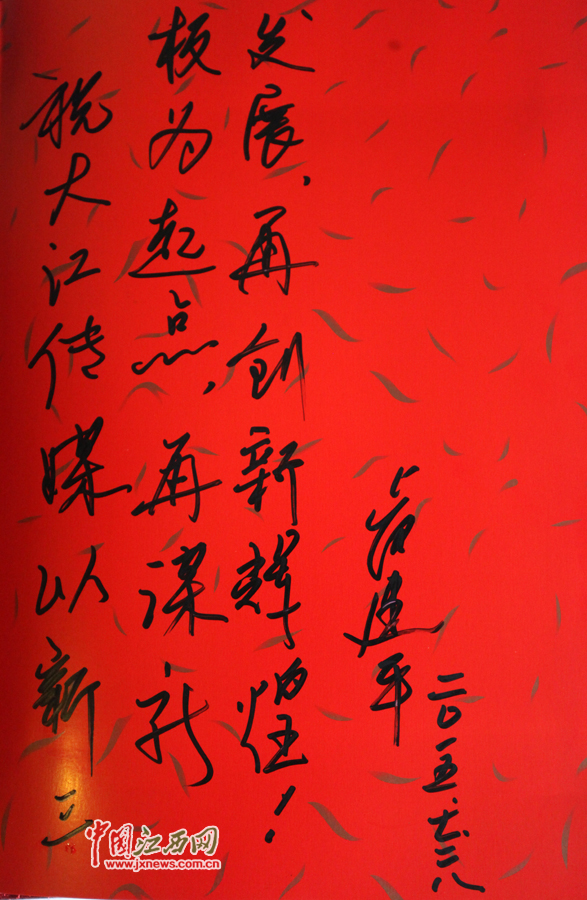 祝大江传媒以新三
板为起点，再谋新
发展，再创新辉煌！
肖建平
二〇一五.七.二八
中国江西网
www.jxnews.com.cn